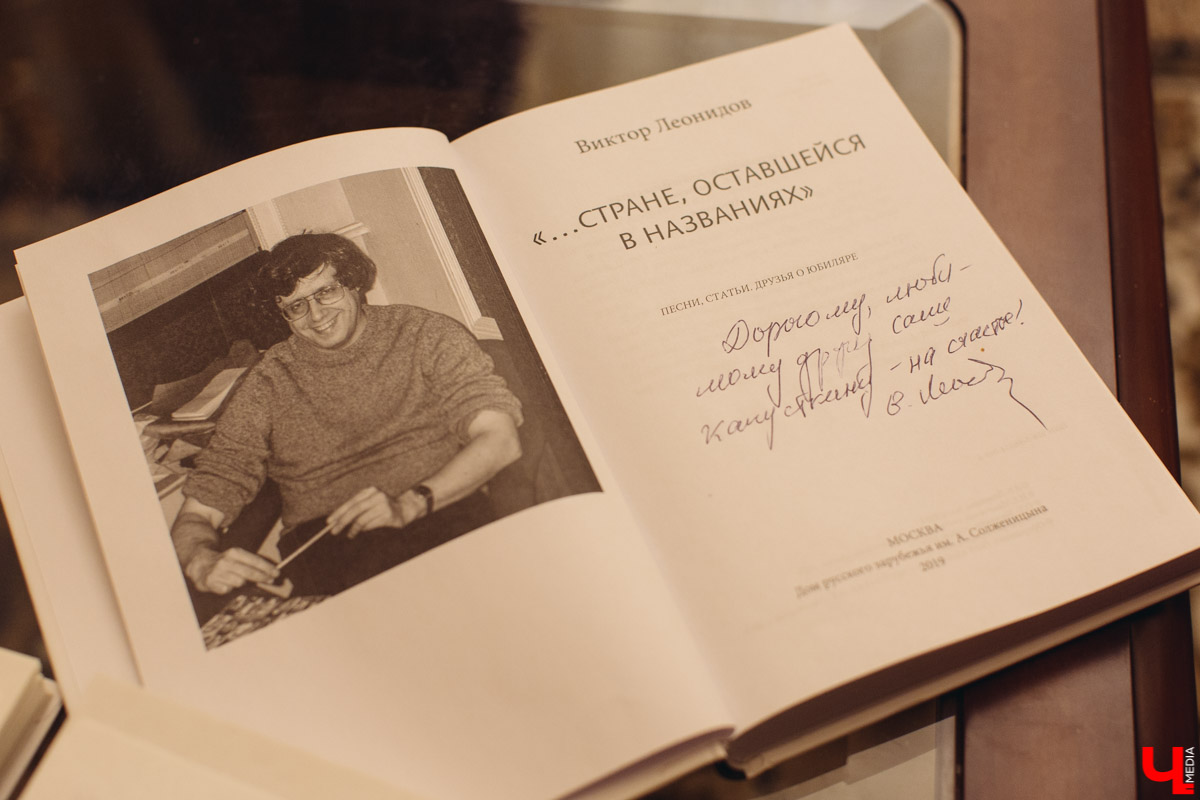 Виктор Леонидов
«...СТРАНЕ, ОСТАВШЕЙСЯ
В НАЗВАНИЯХ»
ПЕСНИ, СТАТЬИ. ДРУЗЬЯ О ЮБИЛЯРЕ
Дорогому, люби-
мому другу Саше
Капусткину - на счастье!
В. Леон
МОСКВА
Дом русского зарубежья им. А. Солженицына
2019
Ч
MEDIA